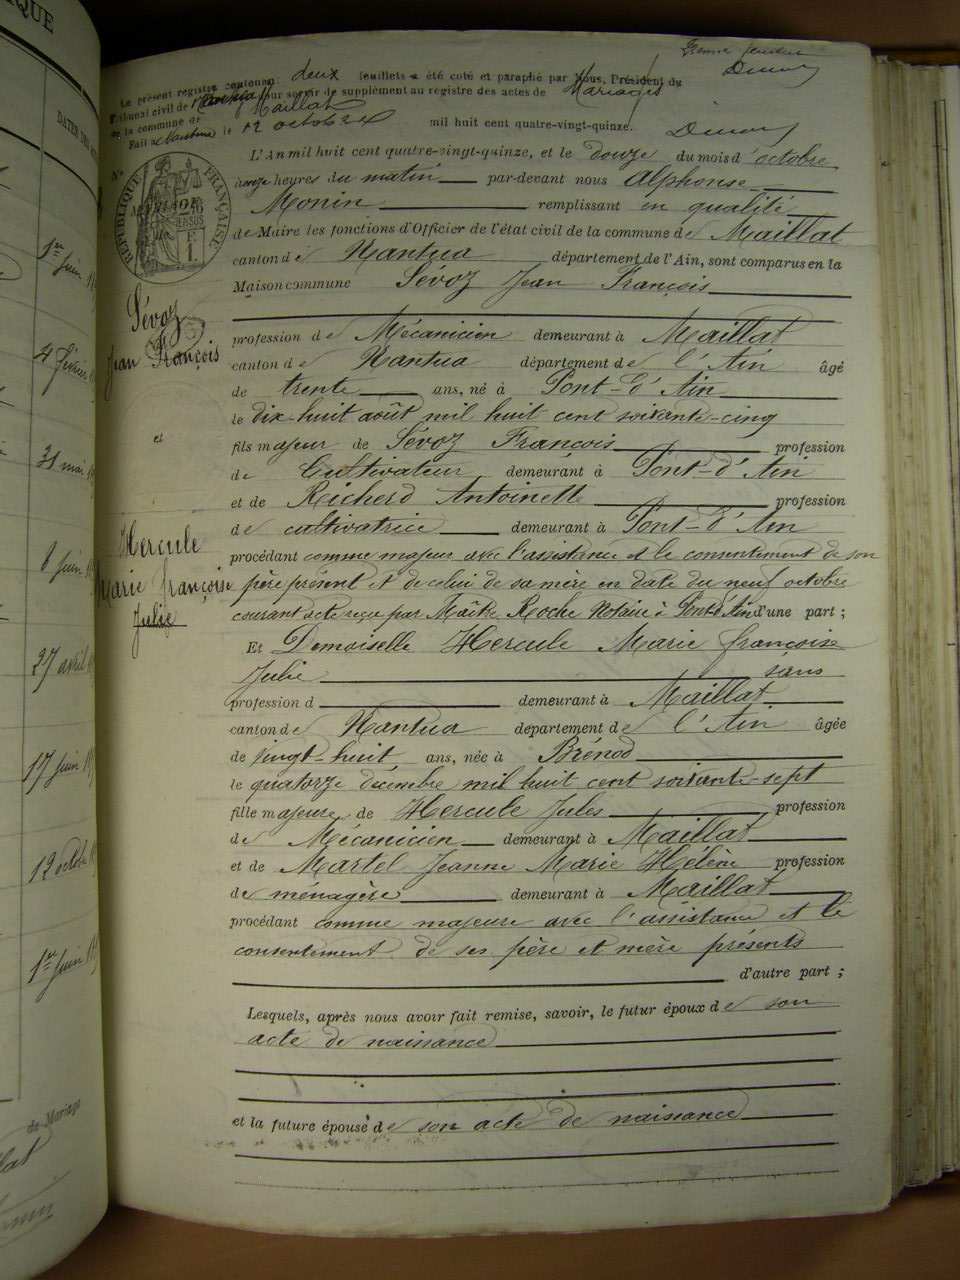 IQUE
DATES DES
1er Juin
4 Février
31 mai
8 Juin
27 avril
17 Juin
12 octobre
1er Juin
de Mariage
Le présent registre contenant deux feuillets a été coté et paraphé par Nous, Président du
Tribunal civil de Nantua pour servir de supplément au registre des actes de Mariages
de la commune de Maillat
Fait à Nantua le 12 octobre mil huit cent quatre-vingt-quinze.
RÉPUBLIQUE FRANÇAISE
L'An mil huit cent quatre-vingt-quinze, et le douze du mois d'octobre
à onze heures du matin par-devant nous Alphonse
Monin remplissant en qualité
de Maire les fonctions d'Officier de l'état civil de la commune de Maillat
canton de Nantua département de l'Ain, sont comparus en la
Maison commune Sévoz Jean François
Sévoz
Jean François
et
Hercule
Marie françoise
Julie
profession de Mécanicien demeurant à Maillat
canton de Nantua département de l'Ain âgé
de trente ans, né à Pont-d'Ain
le dix-huit août mil huit cent soixante-cinq
fils majeur de Sévoz François profession
de Cultivateur demeurant à Pont-d'Ain
et de Richerd Antoinette profession
de cultivatrice demeurant à Pont-d'Ain
procédant comme majeur avec l'assistance et le consentement de son
père présent et de celui de sa mère en date du neuf octobre
courant acte reçu par Maître Roche Notaire à Pont-d'Ain d'une part ;
Et Demoiselle Hercule Marie françoise
Julie sans
profession d demeurant à Maillat
canton de Nantua département de l'Ain âgée
de vingt-huit ans, née à Brénod
le quatorze décembre mil huit cent soixante-sept
fille majeure de Hercule Jules profession
de Mécanicien demeurant à Maillat
et de Martel Jeanne Marie Hélène profession
de ménagère demeurant à Maillat
procédant comme majeure avec l'assistance et le
consentement de ses père et mère présents
d'autre part ;
Lesquels, après nous avoir fait remise, savoir, le futur époux de son
acte de naissance
et la future épouse de son acte de naissance